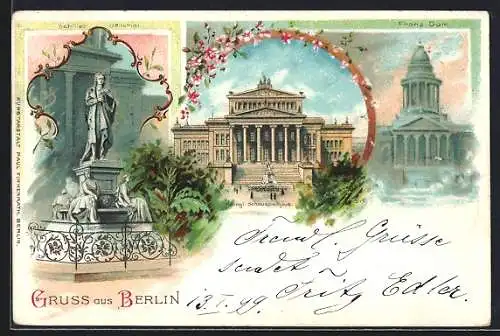 Schiller Denkmal.
Franz. Dom.
Königl. Schauspielhaus.
KUNSTANSTALT PAUL FINKENRATH, BERLIN.
Freundl. Grüsse
sendet
Fritz Edler.
GRUSS AUS BERLIN
13.I.99